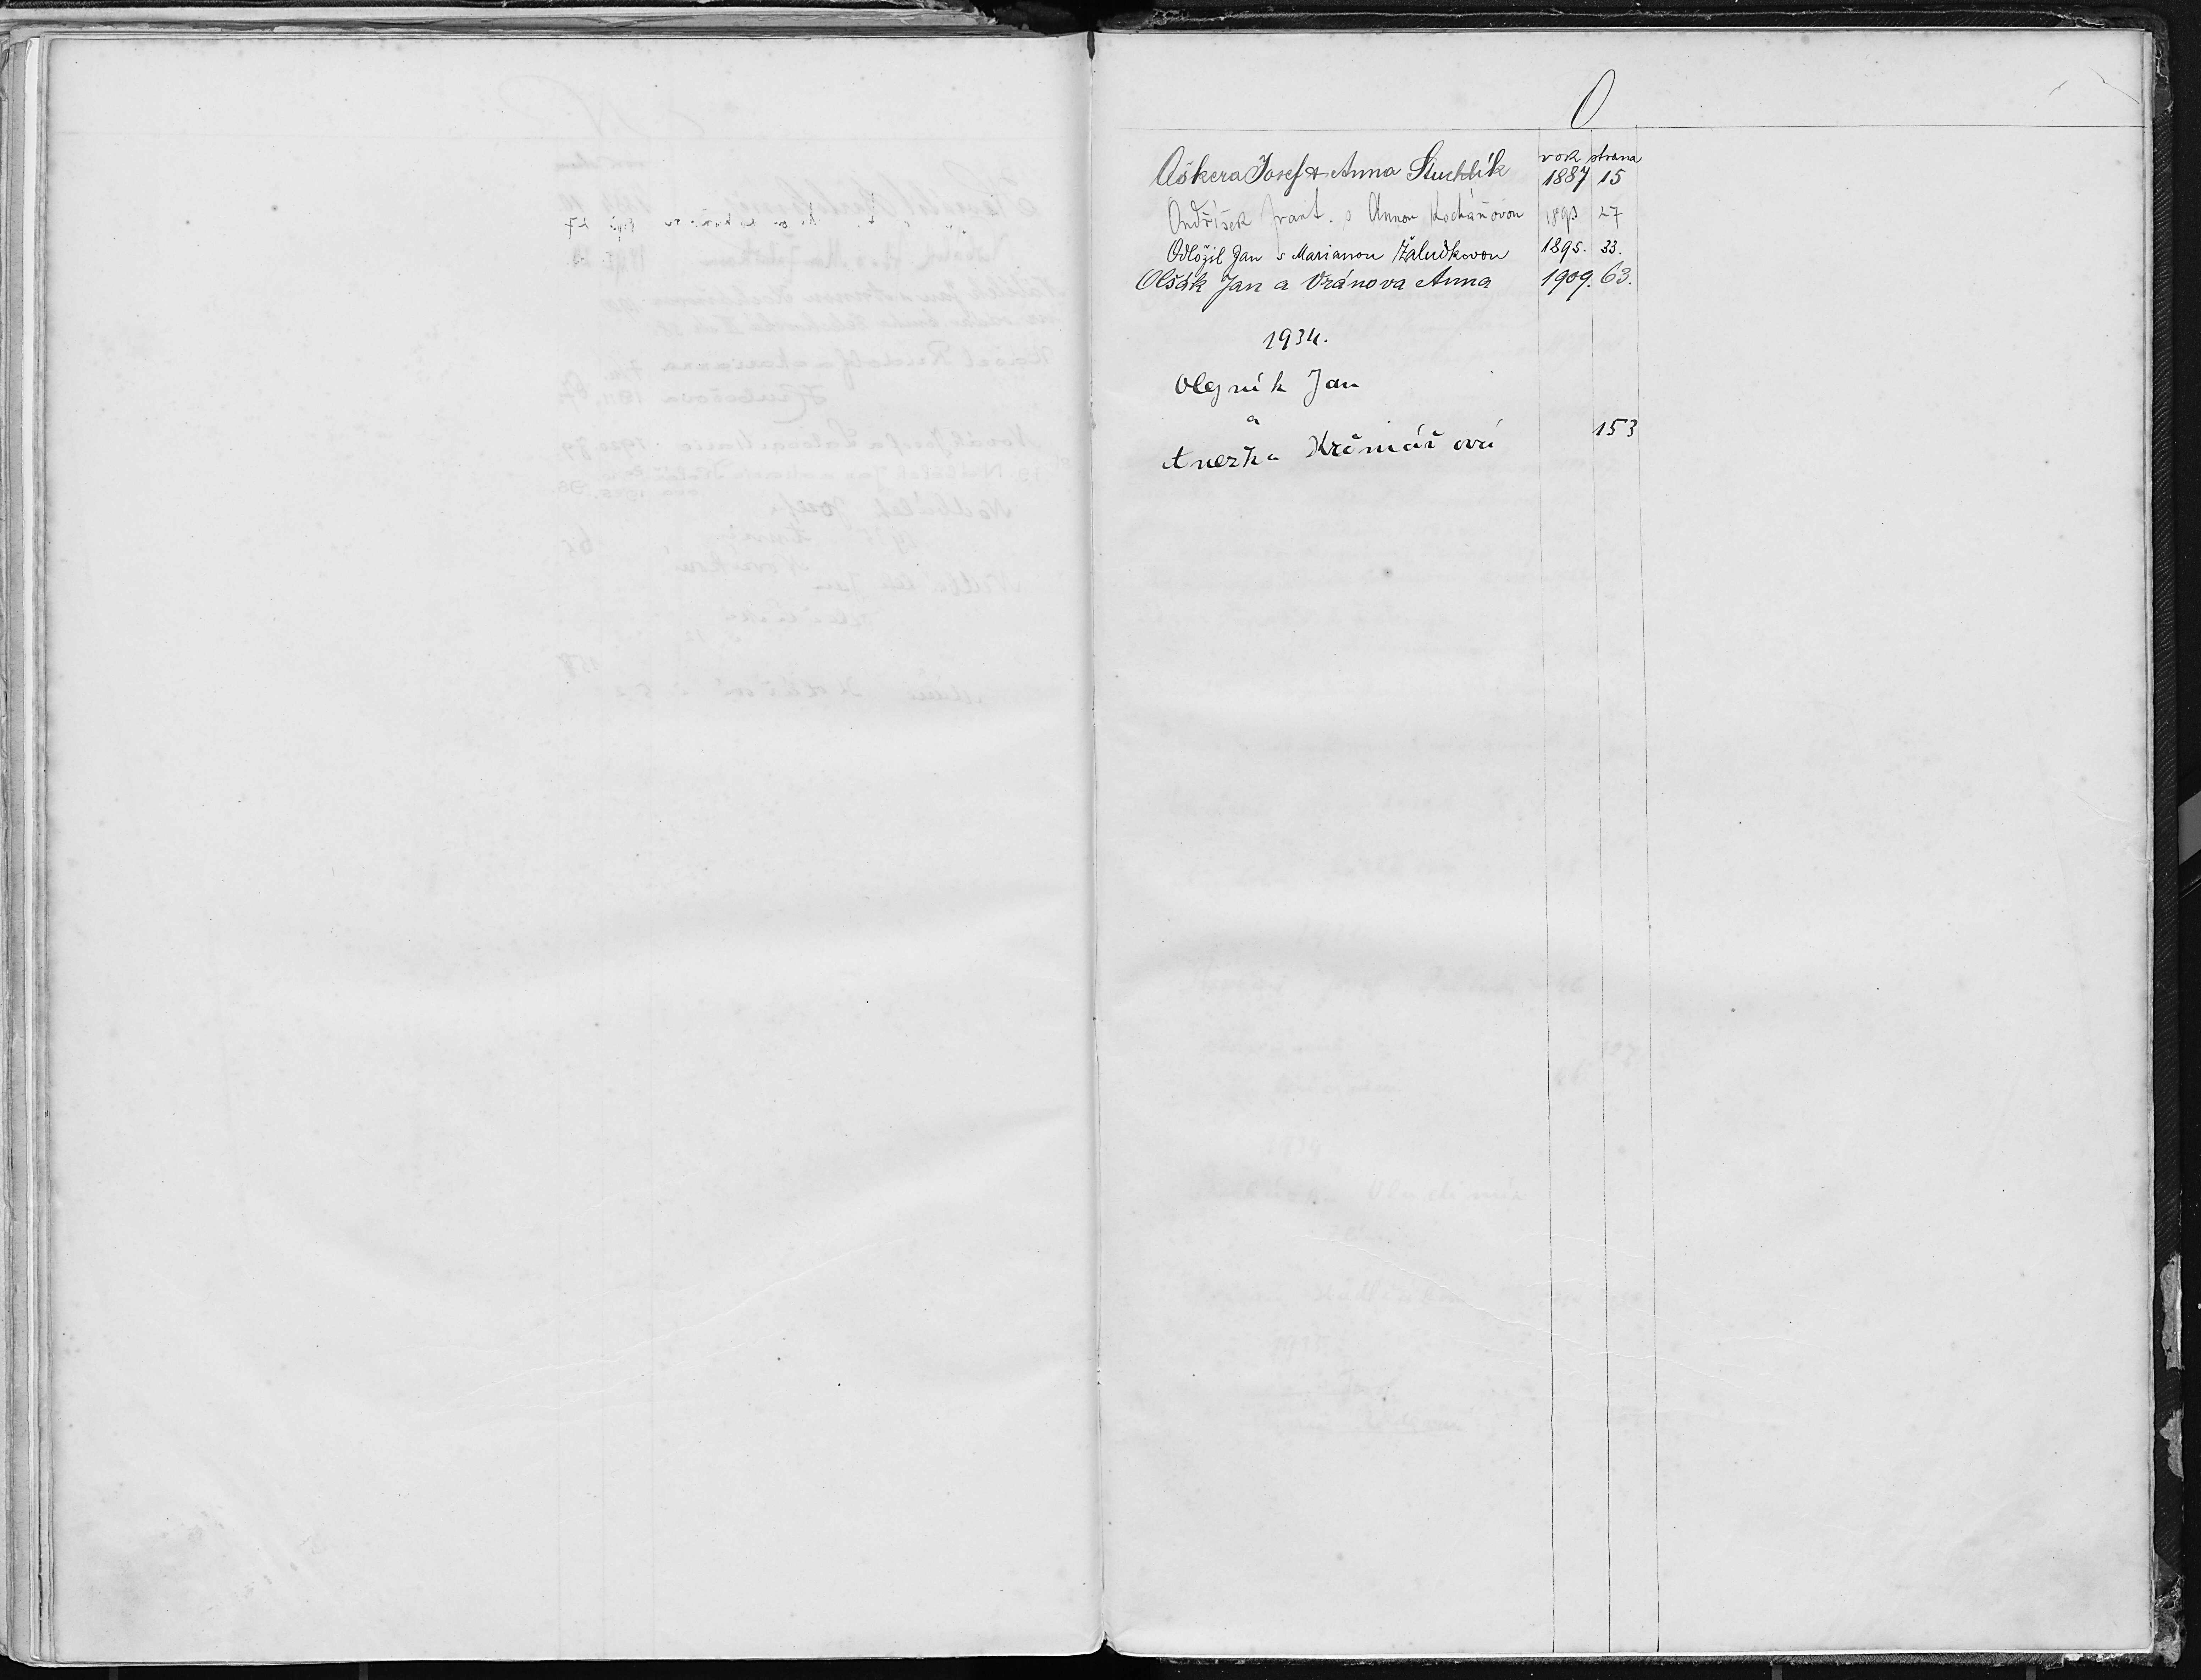 O
rok strana
Oškera Josef & Anna Stuchlík 1887 15
Ondříšek Frant. s Annou Kocháňovou 1893 27
Odložil Jan s Marianou Žaludkovou 1895. 33.
Olšák Jan a Vránova Anna 1909. 63.
1934.
Olejník Jan
a
Anežka Krčmářová 153